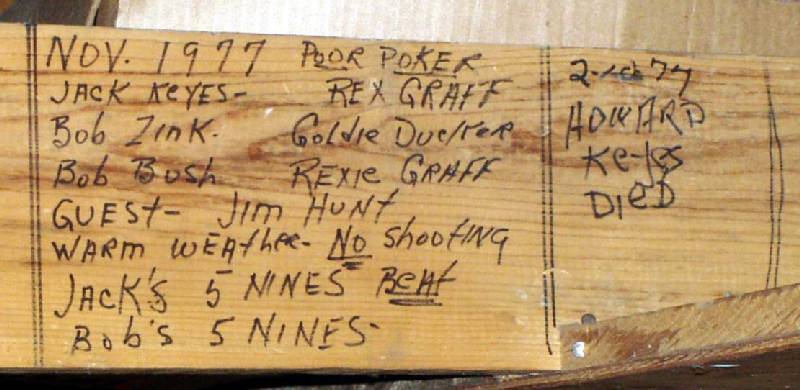 NOV. 1977 POOR POKER
JACK KEYES- REX GRAFF
Bob Zink. Goldie
Bob Bush REXIE GRAFF
GUEST- Jim HUNT
WARM WEAthER- No ShootING
JACK'S 5 NINES BEAt
Bob's 5 NINES-
HOWARD
KEYES
DIED